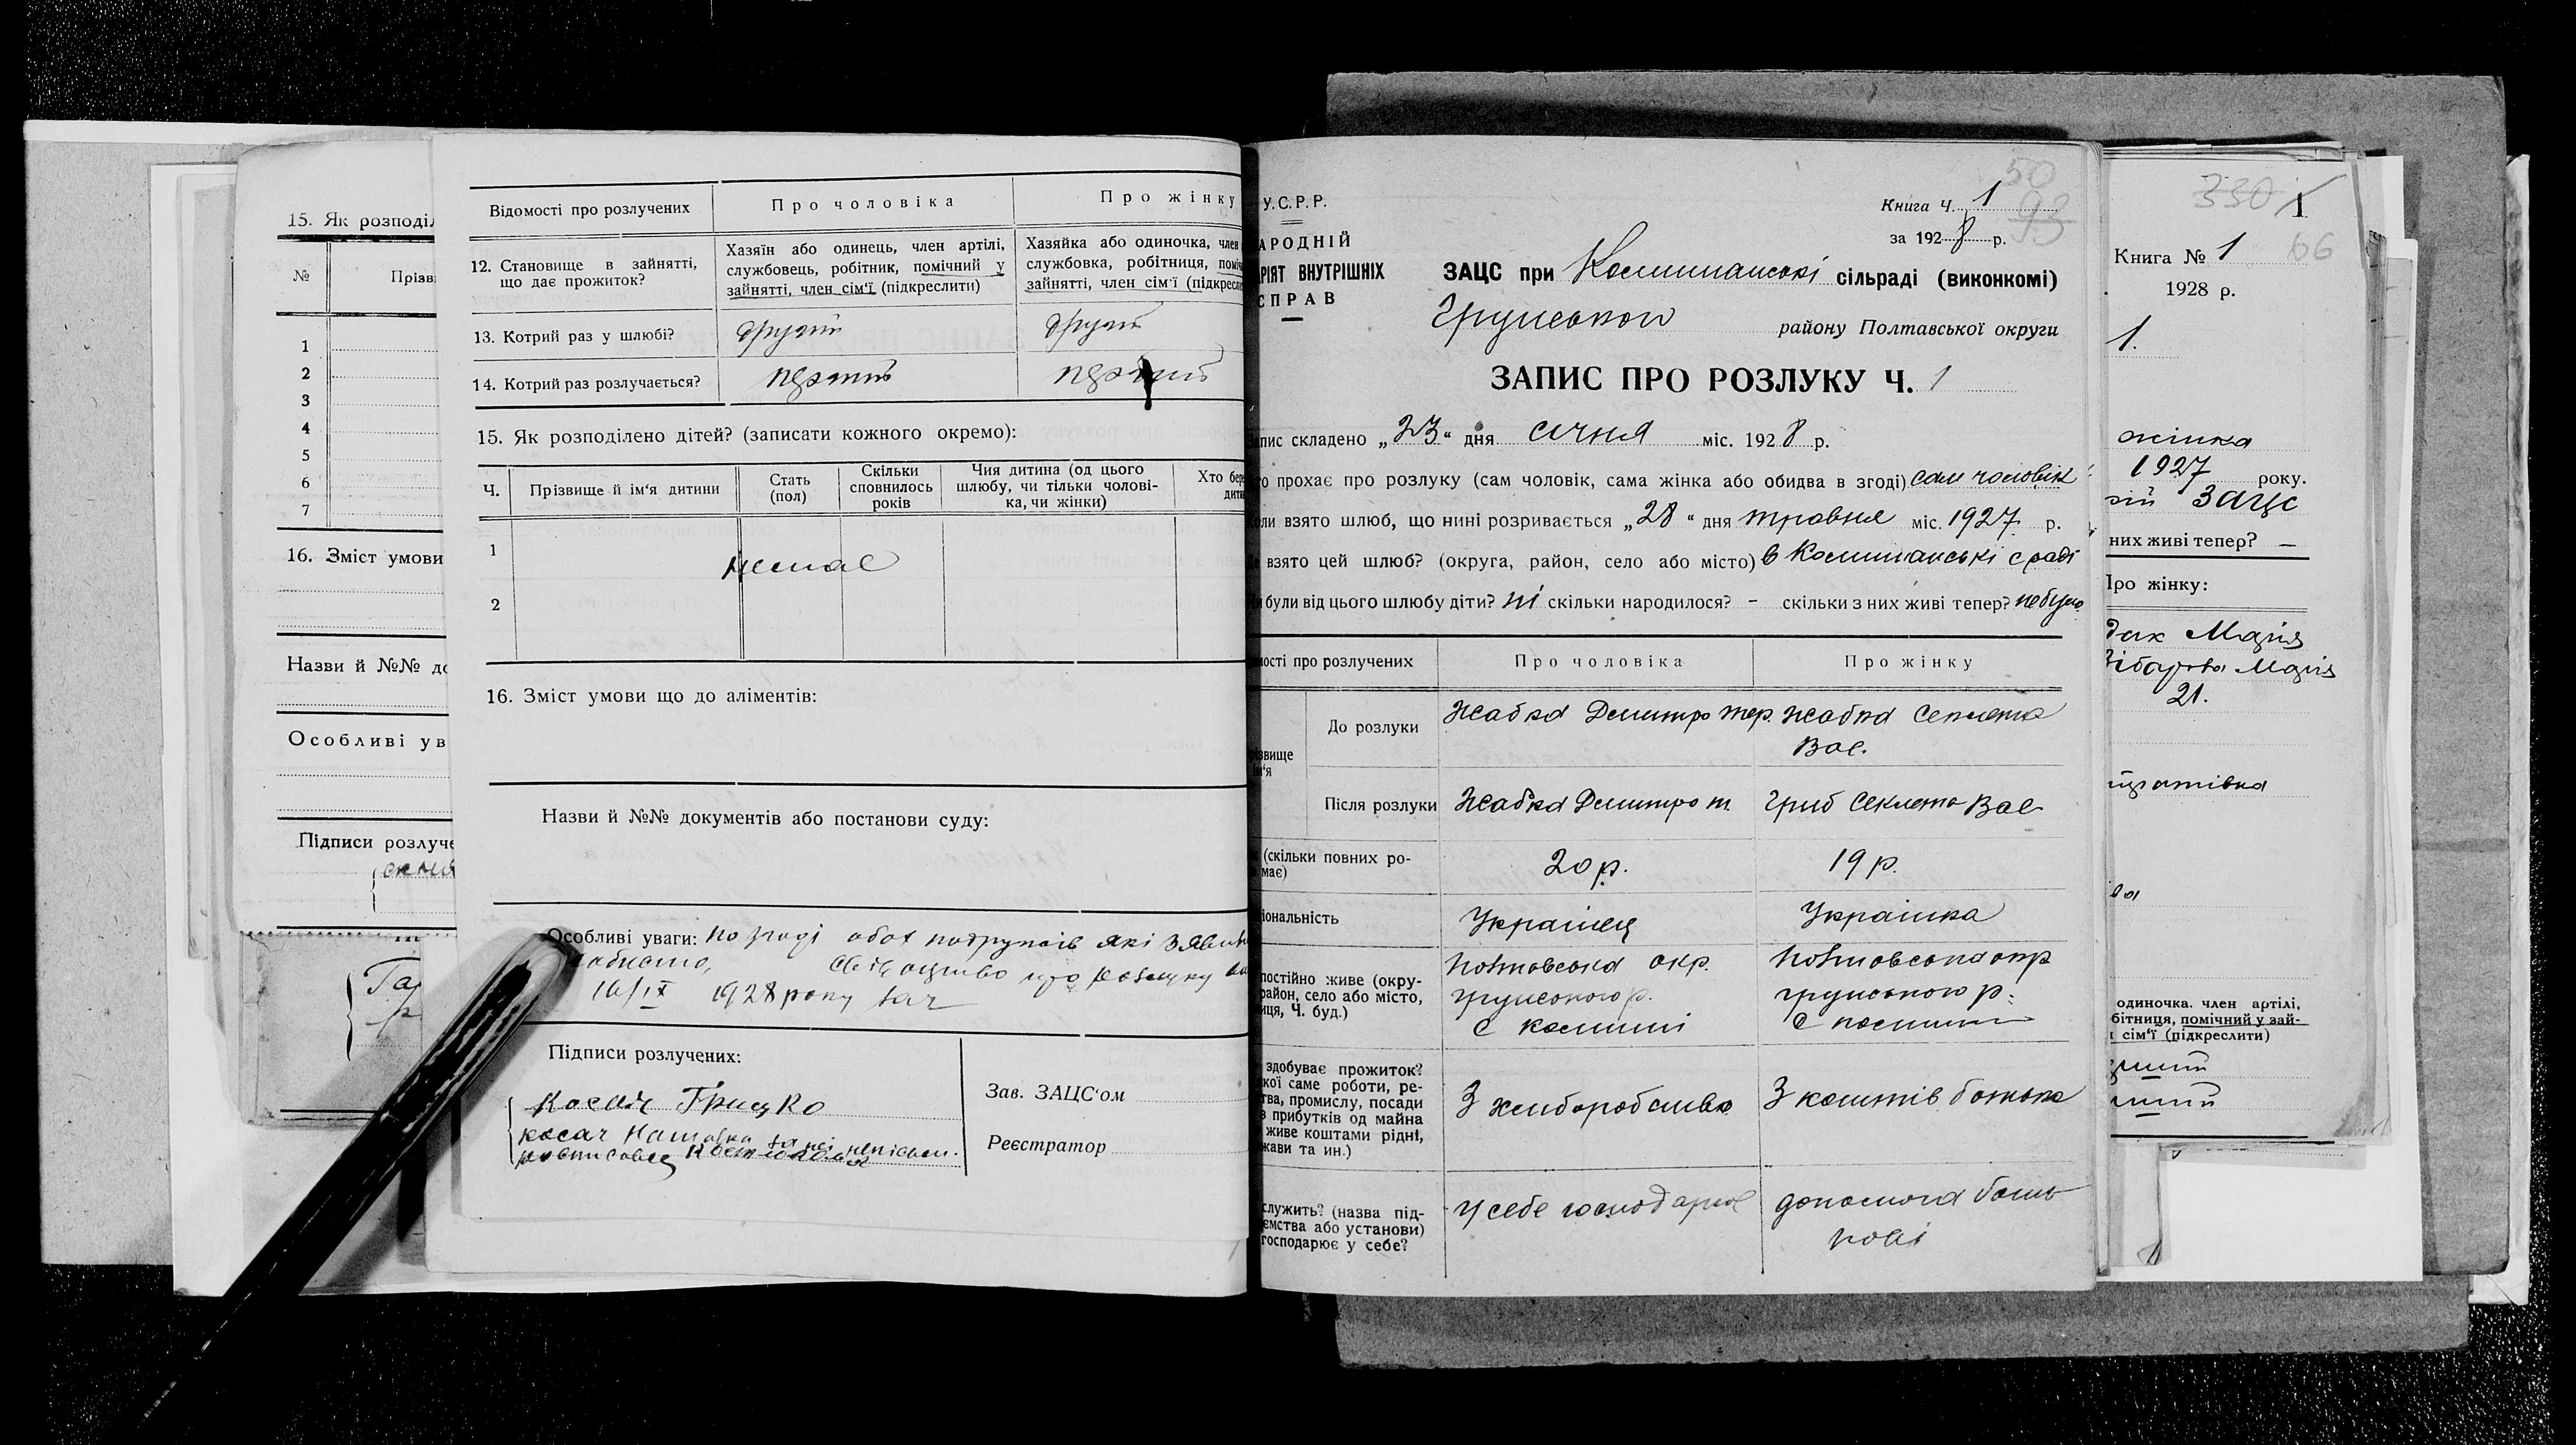 15. Як розподіл
№ Прізв
1
2
3
4
5
6
7
16. Зміст умови
Назви й №№ до
Особливі ув
Підписи розлуче
Відомості про розлучених
Про чоловіка
Про жінку
12. Становище в зайнятті,
що дає прожиток?
Хазяїн або одинець, член артілі,
службовець, робітник, помічний у
зайнятті, член сім'ї (підкреслити)
Хазяйка або одиночка, член
службовка, робітниця, поміч
зайнятті, член сім'ї (підкресли
13. Котрий раз у шлюбі?
другий
другий
14. Котрий раз розлучається?
перший
перший
15. Як розподілено дітей? (записати кожного окремо):
Ч.
Прізвище й ім'я дитини
Стать
(пол)
Скільки
сповнилось
років
Чия дитина (од цього
шлюбу, чи тільки чолові-
ка, чи жінки)
Хто бере
дити
1
немає
2
16. Зміст умови що до аліментів:
Назви й №№ документів або постанови суду:
Особливі уваги: По згоді обох подружжів які
Свідоцтво про розлуку
16/IX 1928 року
Підписи розлучених:
Косач Грицко
косач
Зав. ЗАЦС'ом
Реєстратор
У.С.Р.Р.
АРОДНІЙ
РІЯТ ВНУТРІШНІХ
СПРАВ
50
93
Книга Ч. 1
за 1928 р.
ЗАЦС при сільраді (виконкомі)
Грунського району Полтавської округи
ЗАПИС ПРО РОЗЛУКУ Ч. 1
пис складено „23“ дня січня міс. 1928 р.
о прохає про розлуку (сам чоловік, сама жінка або обидва в згоді) сам чоловік
оли взято шлюб, що нині розривається „28“ дня травня міс. 1927 р.
взято цей шлюб? (округа, район, село або місто) в
були від цього шлюбу діти? ні скільки народилося? – скільки з них живі тепер? не було
мості про розлучених
Про чоловіка
Про жінку
ізвище
ім'я
До розлуки
Жабка Демитро
Жабка Секлета
Вас.
Після розлуки
Жабка Демитро т.
Гриб Секлета Вас
(скільки повних ро-
має)
20 р.
19 р.
іональність
Українец
Українка
постійно живе (окру-
район, село або місто,
иця, Ч. буд.)
Полтовська окр.
грунського р.
Полтовська окр
грунського р.
здобуває прожиток?
кої саме роботи, ре-
тва, промислу, посади
з прибутків од майна
живе коштами рідні,
жави та ин.)
З хліборобства
З коштів батька
служить? (назва під-
ємства або установи)
господарює у себе?
У себе господарює
допомога бать
кові
330
1
66
Книга № 1
1928 р.
1.
жінка
1927 року.
ЗАЦС
них живі тепер? —
Про жінку:
Марія
Марія
21.
одиночка. член артілі,
бітниця, помічний у зай-
сім'ї (підкреслити)